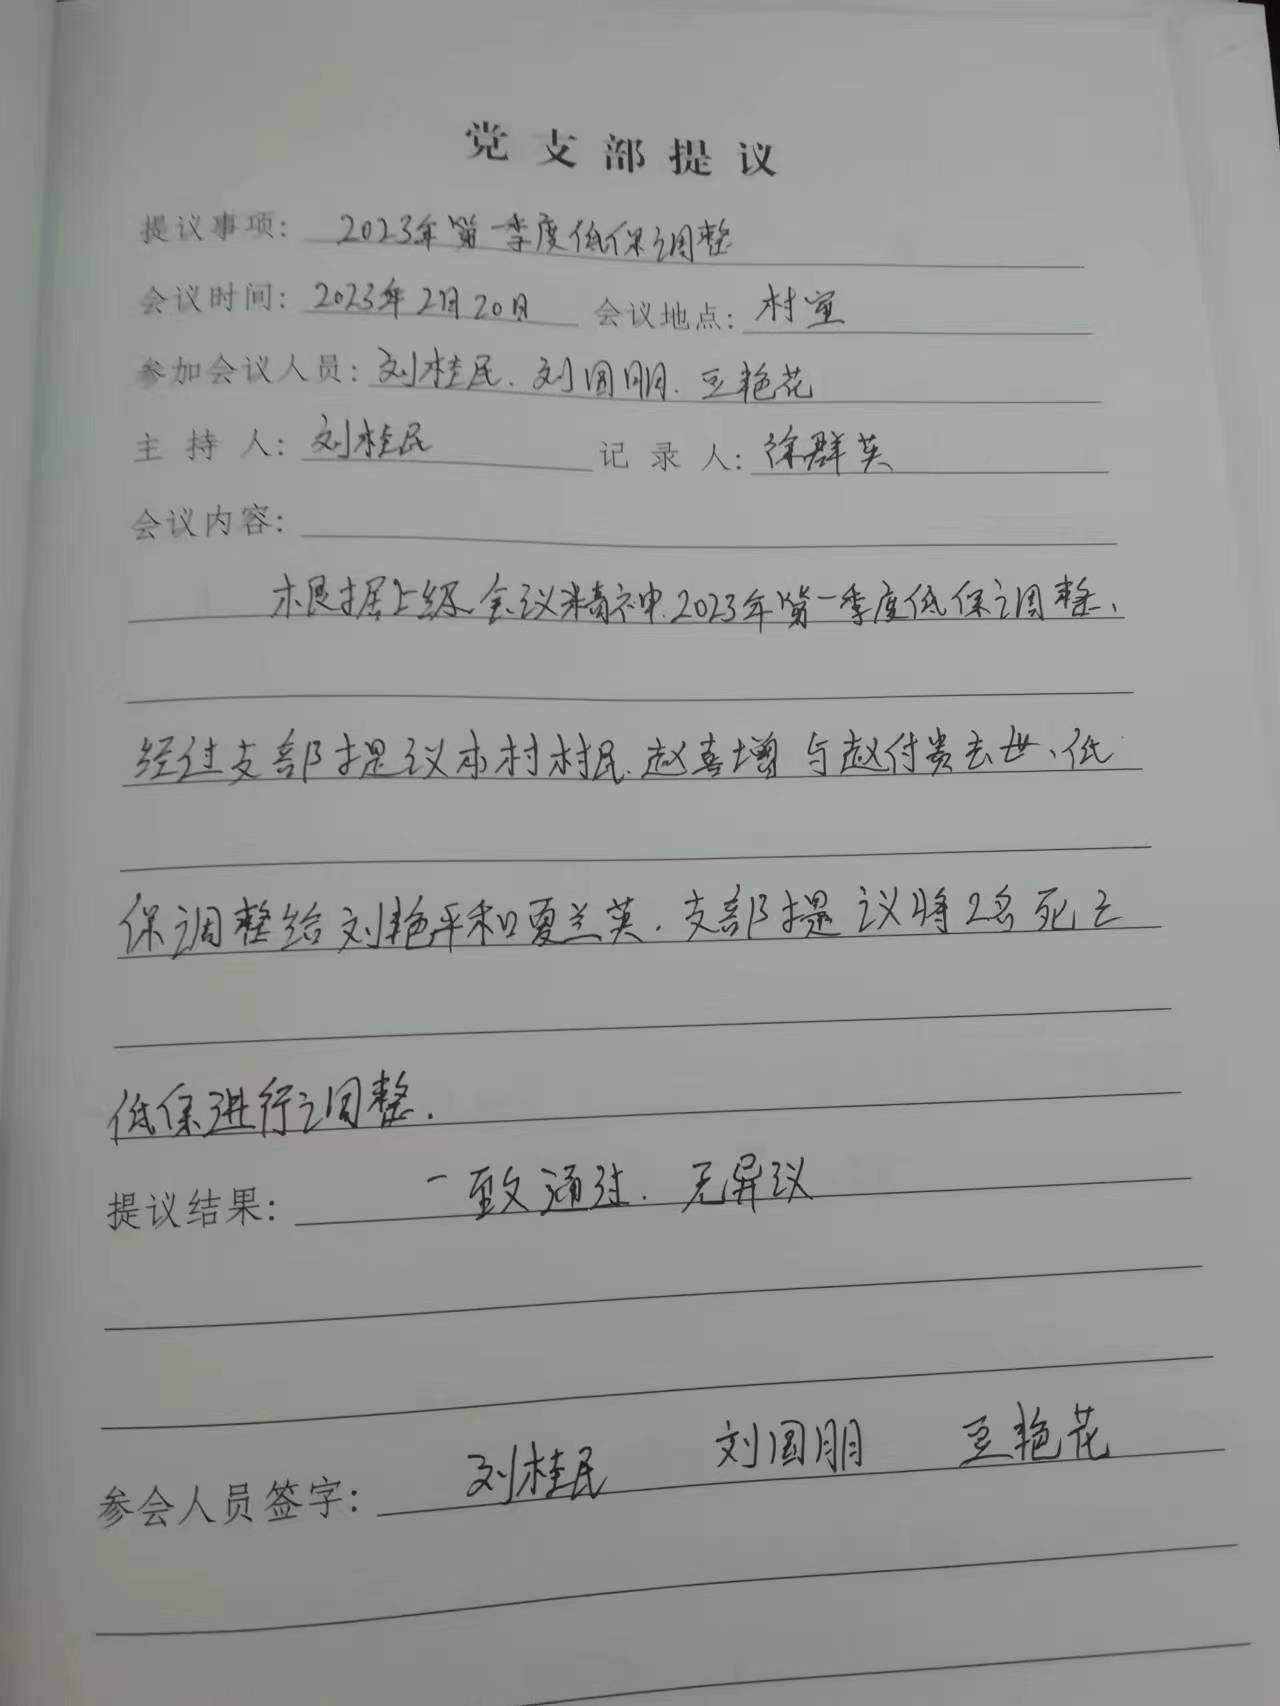 党支部提议
提议事项: 2023年第一季度低保调整
会议时间: 2023年2月20日 会议地点: 村室
参加会议人员: 刘桂民. 刘国朋. 王艳花
主持人: 刘桂民 记录人: 徐群英
会议内容:
根据上级会议精神.2023年第一季度低保调整、
经过支部提议本村村民.赵喜增与赵付贵去世、低
保调整给刘艳平和夏兰英.支部提议将2名死亡
低保进行调整.
提议结果: 一致通过. 无异议
参会人员签字: 刘桂民 刘国朋 王艳花